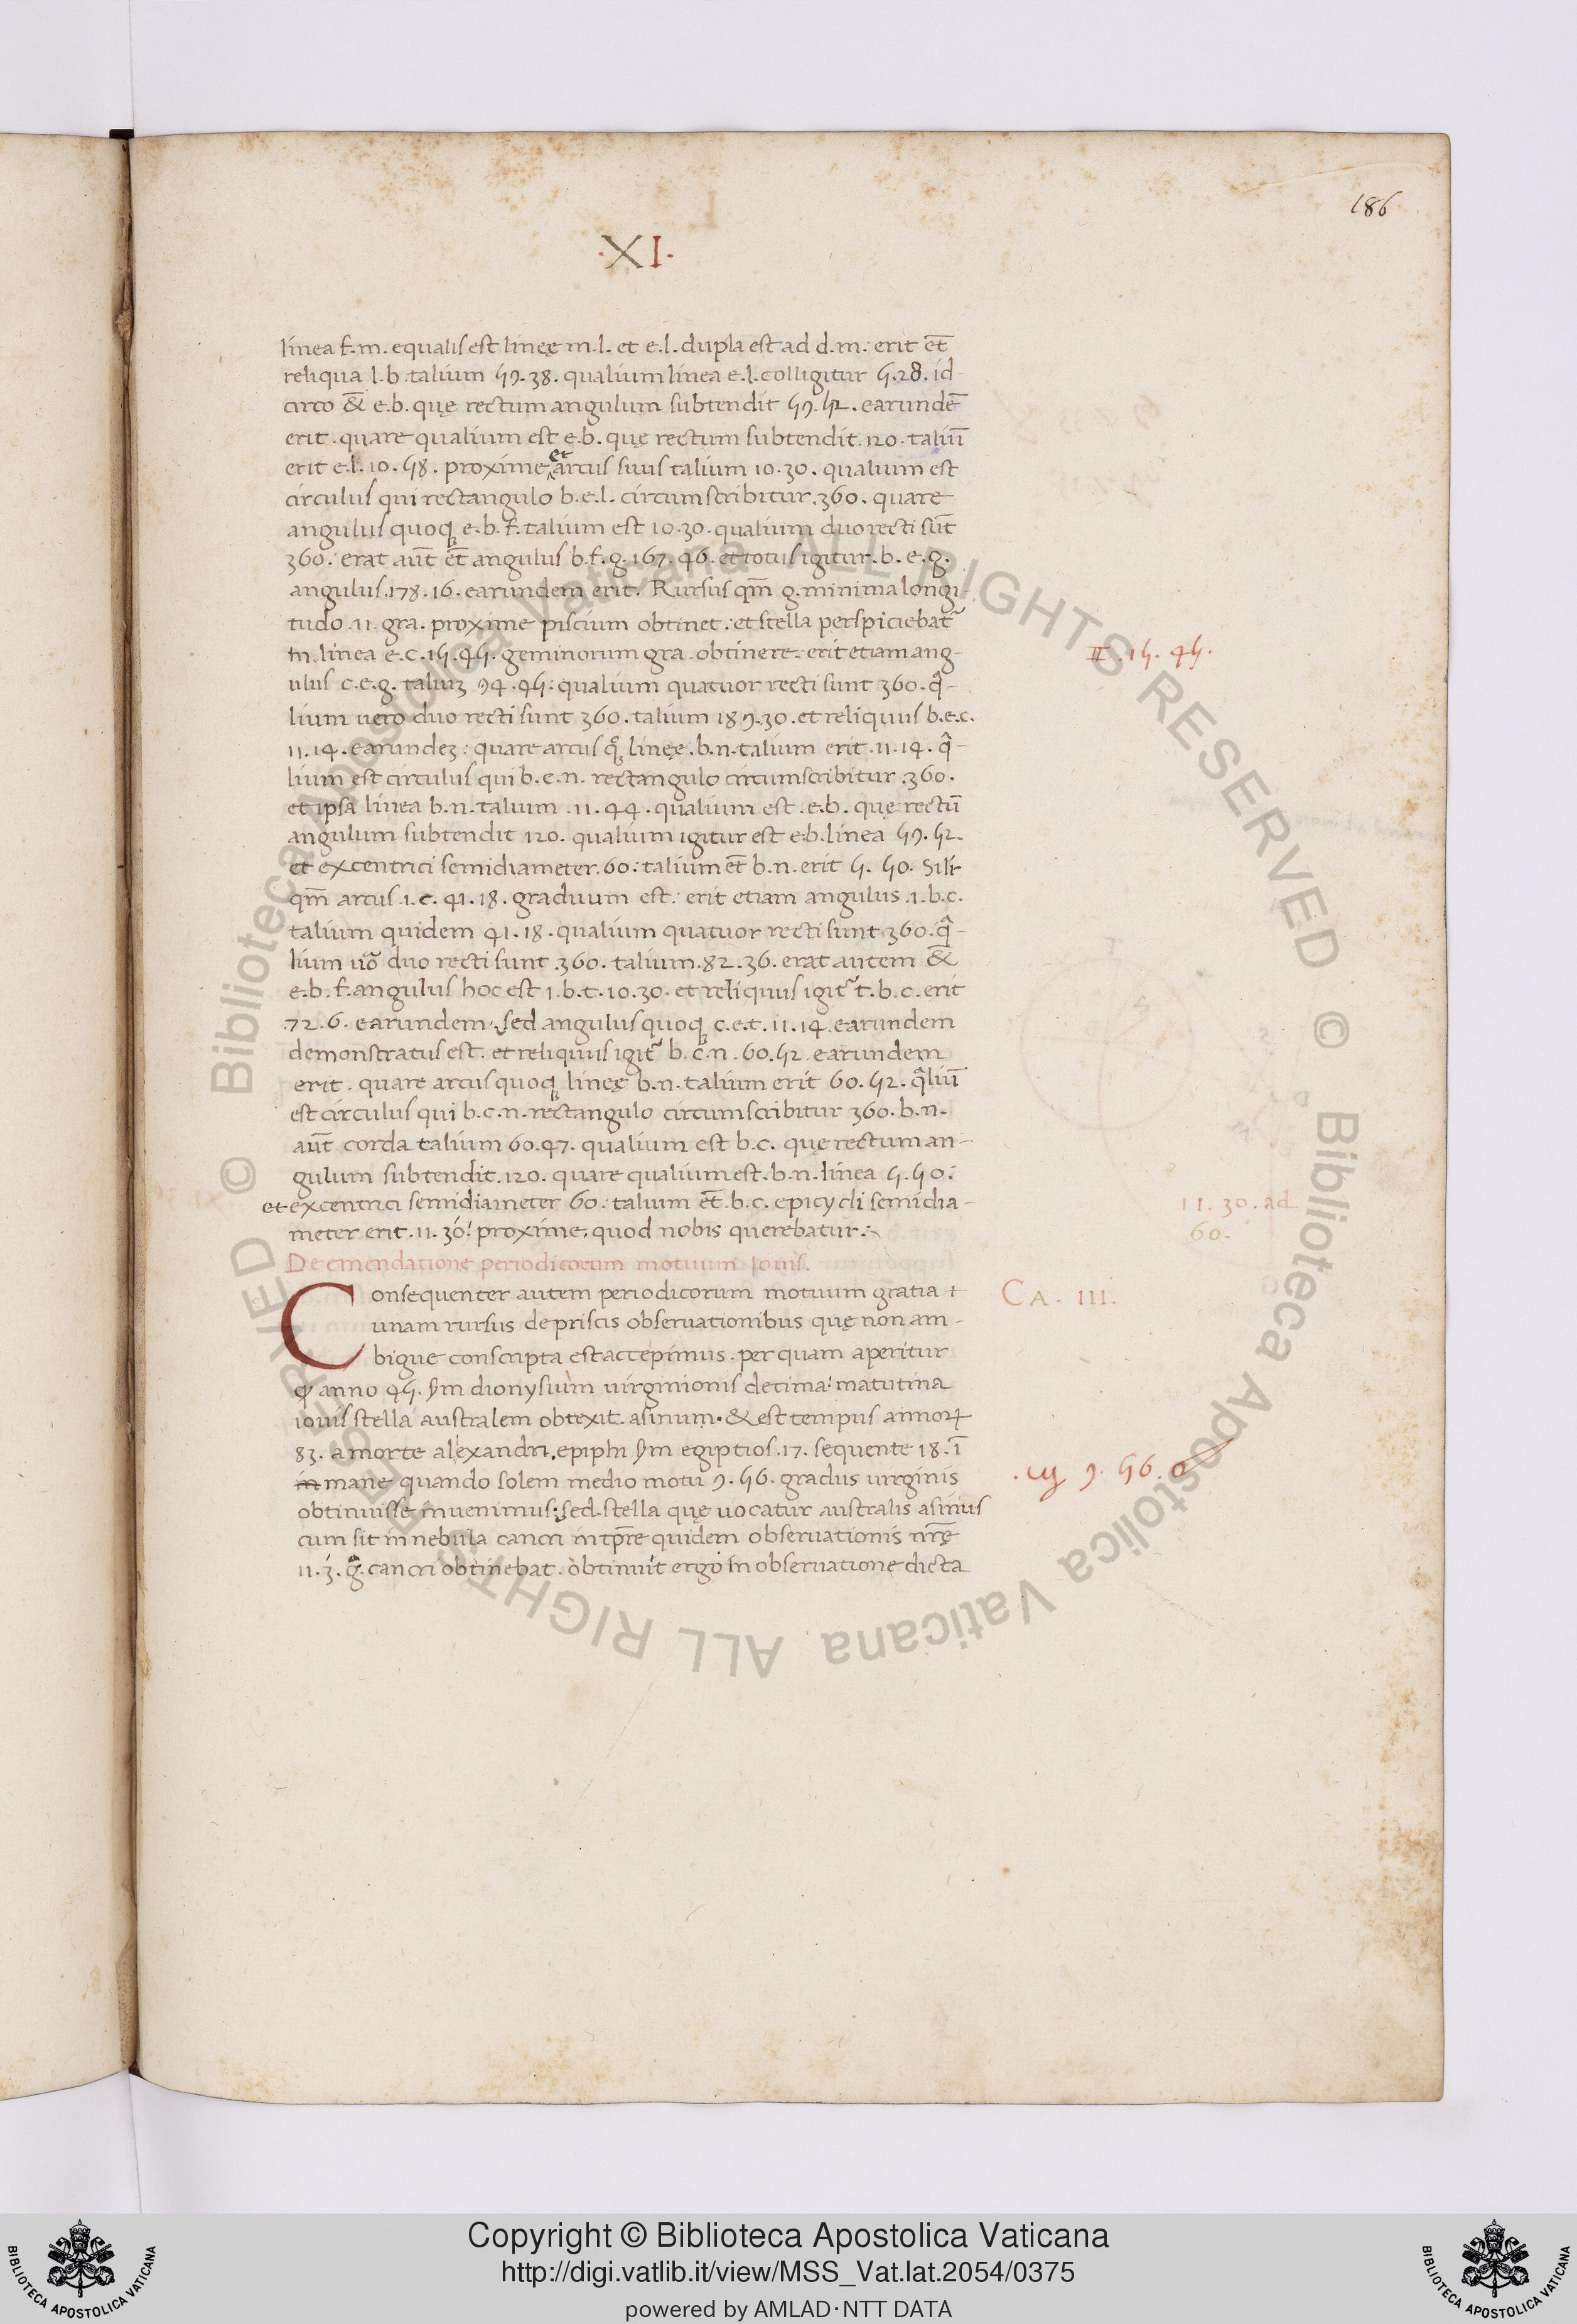 186
·XI·
linea f.m. equalis est lineę m.l. et e.l. dupla est ad d.m: erit et̄
reliqua l.b. talium 59.38. qualium linea e.l. colligitur 5.28. id-
circo & e.b. quę rectum angulum subtendit 59.52. earundē
erit. quare qualium est e.b. quę rectum subtendit .120. taliū
erit e.l. 10.58. proxime et arcus suus talium 10.30. qualium est
circulus qui rectangulo b.e.l. circumscribitur .360. quare
angulus quoq; e.b.f. talium est 10.30. qualium duo recti sūt
360: erat aūt et̄ angulus b.f.g. 167.46. et totus igitur .b.e.g.
angulus .178.16. earundem erit. Rursus qm̄ g. minima longi-
tudo .11. gra. proxime piscium obtinet: et stella perspiciebat᷑
in linea e.c. 15.45. geminorum gra. obtinere: erit etiam ang-
ulus c.e.g. taliuꝫ 94.45: qualium quatuor recti sunt 360. q̄-
lium uero duo recti sunt 360. talium 189.30. et reliquus b.e.c.
11.14. earundeꝫ: quare arcus qͦꝫ lineę .b.n. talium erit .11.14. q̄-
lium est circulus qui b.e.n. rectangulo circumscribitur .360.
et ipsa linea b.n. talium .11.44. qualium est .e.b. quę rectū
angulum subtendit 120. qualium igitur est e.b. linea 59.52.
et excentrici semidiameter .60: talium et̄ b.n. erit 5.50. Silr̄
qm̄ arcus .l.c. 41.18. graduum est: erit etiam angulus .l.b.c.
talium quidem 41.18. qualium quatuor recti sunt 360. q̄-
lium uō duo recti sunt .360. talium .82.36. erat autem &
e.b.f. angulus hoc est l.b.t. 10.30. et reliquus igit᷑ t.b.c. erit
.72.6. earundem. sed angulus quoq; c.e.t. 11.14. earundem
demonstratus est. et reliquus igit᷑ b.c.n. 60.52. earundem
erit. quare arcus quoq; lineę b.n. talium erit 60.52. q̄liū
est circulus qui b.c.n. rectangulo circumscribitur 360. b.n.
aūt corda talium 60.47. qualium est b.c. quę rectum an-
gulum subtendit .120. quare qualium est .b.n. linea 5.50:
et excentrici semidiameter 60: talium et̄ .b.c. epicycli semidia-
meter erit .11.30. proxime. quod nobis querebatur:
De emendatione periodicorum motuum Iouis.
Consequenter autem periodicorum motuum gratia
unam rursus de priscis obseruationibus quę non am-
bigue conscripta est accepimus. per quam aperitur
ꝙ anno 45. sm̄ dionysium uirginionis decima: matutina
iouis stella australem obtexit asinum. & est tempus annoꝝ
83. a morte alexandri. epiphi sm̄ egiptios .17. sequente 18. ī
in mane quando solem medio motu 9.56. gradus uirginis
obtinuisse inuenimus: sed stella quę uocatur australis asinus
cum sit in nebula cancri in tp̄re quidem obseruationis nr̄ę
11.3. g. cancri obtinebat. obtinuit ergo in obseruatione dicta
♊.15.45.
11.30. ad
60.
CA. III.
.♍ 9.56.
Copyright © Biblioteca Apostolica Vaticana
http://digi.vatlib.it/view/MSS_Vat.lat.2054/0375
powered by AMLAD·NTT DATA
BIBLIOTECA APOSTOLICA VATICANA
BIBLIOTECA APOSTOLICA VATICANA
© Biblioteca Apostolica Vaticana ALL RIGHTS RESERVED © Biblioteca Apostolica Vaticana ALL RIGHTS RESERVED